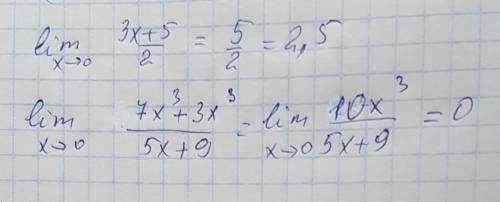 lim x→0 (3x+5)/2 = 5/2 = 2,5
lim x→0 (7x³+3x³)/(5x+9) = lim x→0 10x³/(5x+9) = 0